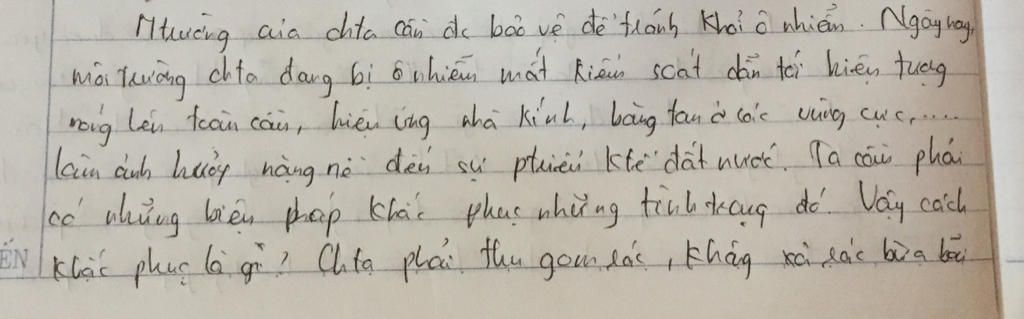 Mtrường của chta cần đc bảo vệ để tránh khỏi ô nhiễm. Ngày nay,
môi trường chta đang bị ô nhiễm mất kiểm soát dẫn tới hiện tượng
nóng lên toàn cầu, hiệu ứng nhà kính, băng tan ở các vùng cực,....
làm ảnh hưởng nặng nề đến sự ptriển ktế đất nước. Ta cần phải
có những biện pháp khắc phục những tình trạng đó. Vậy cách
khắc phục là gì? Chta phải thu gom rác, không xả rác bừa bãi
ẾN